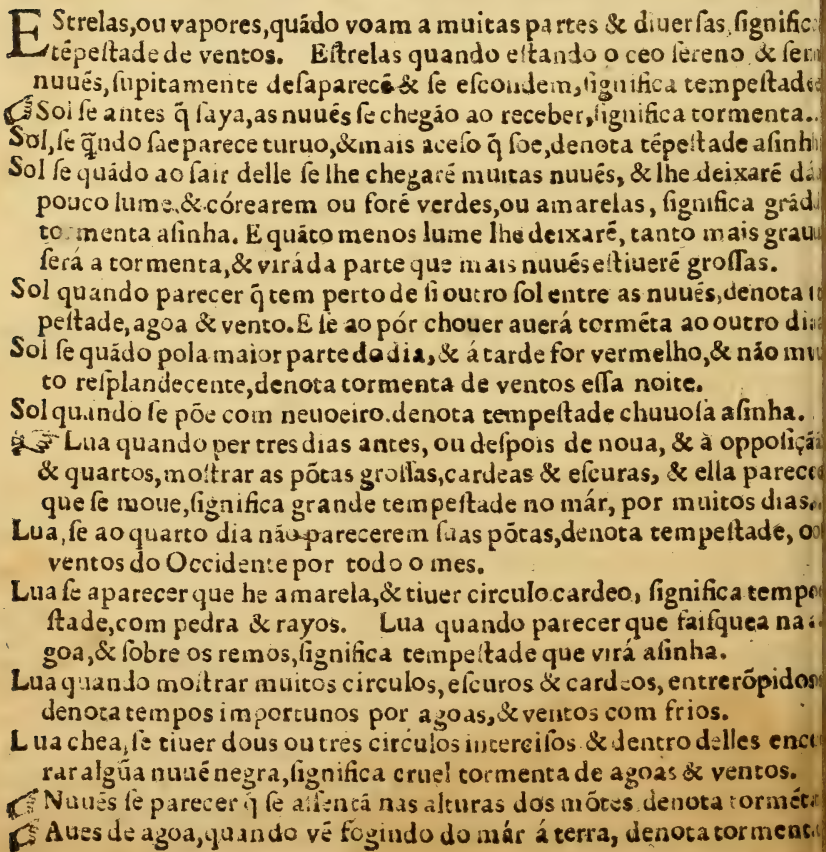 EStrelas,ou vapores,quãdo voam a muitas partes & diuerſas,ſignific
tẽpeſtade de ventos. Eſtrelas quando eſtando o ceo ſereno & ſem
nuuẽs,ſupitamente deſaparecẽ & ſe eſcondem,ſignifica tempeſtade
☞ Sol ſe antes q̃ ſaya,as nuuẽs ſe chegão ao receber,ſignifica tormenta.
Sol,ſe q̃ndo ſae parece turuo,& mais aceſo q̃ ſoe,denota tẽpeſtade aſinh
Sol ſe quãdo ao ſair delle ſe lhe chegarẽ muitas nuuẽs, & lhe deixarẽ da
pouco lume,& córearem ou forẽ verdes,ou amarelas, ſignifica grãd
tormenta aſinha. E quãto menos lume lhe deixarẽ, tanto mais graue
ſerá a tormenta,& virá da parte que mais nuuẽs eſtiuerẽ groſſas.
Sol quando parecer q̃ tem perto de ſi outro ſol entre as nuuẽs,denota tẽ
peſtade, agoa & vento. E ſe ao pór chouer auerá tormẽta ao outro dia
Sol ſe quãdo pola maior parte do dia, & á tarde for vermelho,& não mui
to reſplandecente,denota tormenta de ventos eſſa noite.
Sol quando ſe põe com neuoeiro.denota tempeſtade chuuoſa aſinha.
☞ Lua quando per tres dias antes, ou deſpois de noua, & à oppoſiçã
& quartos,moſtrar as põtas groſſas,cardeas & eſcuras, & ella parecer
que ſe moue,ſignifica grande tempeſtade no már, por muitos dias.
Lua,ſe ao quarto dia não parecerem ſuas põtas,denota tempeſtade, ou
ventos do Occidente por todo o mes.
Lua ſe aparecer que he amarela,& tiuer circulo cardeo, ſignifica tempe
ſtade,com pedra & rayos. Lua quando parecer que faiſquea na a
goa,& ſobre os remos,ſignifica tempeſtade que virá aſinha.
Lua quando moſtrar muitos circulos, eſcuros & cardeos, entrerõpidos
denota tempos importunos por agoas,& ventos com frios.
Lua chea,ſe tiuer dous ou tres circulos interciſos & dentro delles enco
rar algũa nuuẽ negra,ſignifica cruel tormenta de agoas & ventos.
☞ Nuuẽs ſe parecer q̃ ſe aſſentã nas alturas dos mõtes denota tormẽta
☞ Aues de agoa,quando vẽ fogindo do már á terra, denota tormenta